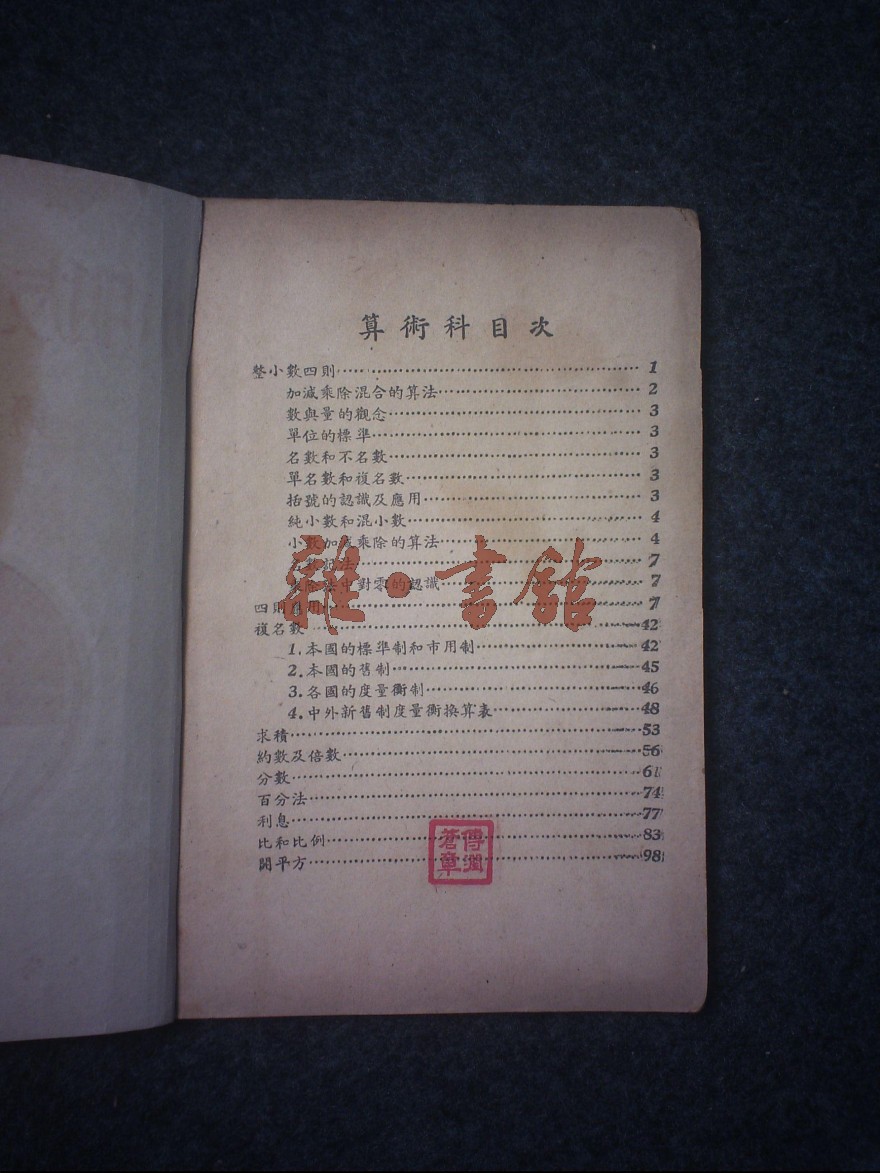 算術科目次
整小數四則 1
加減乘除混合的算法 2
數與量的觀念 3
單位的標準 3
名數和不名數 3
單名數和複名數 3
括號的認識及應用 3
純小數和混小數 4
小數加減乘除的算法 4
數記法 7
除法中對零的認識 7
四則應用 7
複名數 42
1.本國的標準制和市用制 42
2.本國的舊制 45
3.各國的度量衡制 46
4.中外新舊制度量衡換算表 48
求積 53
約數及倍數 56
分數 61
百分法 74
利息 77
比和比例 83
開平方 98
雜·書館
傅潤蒼章